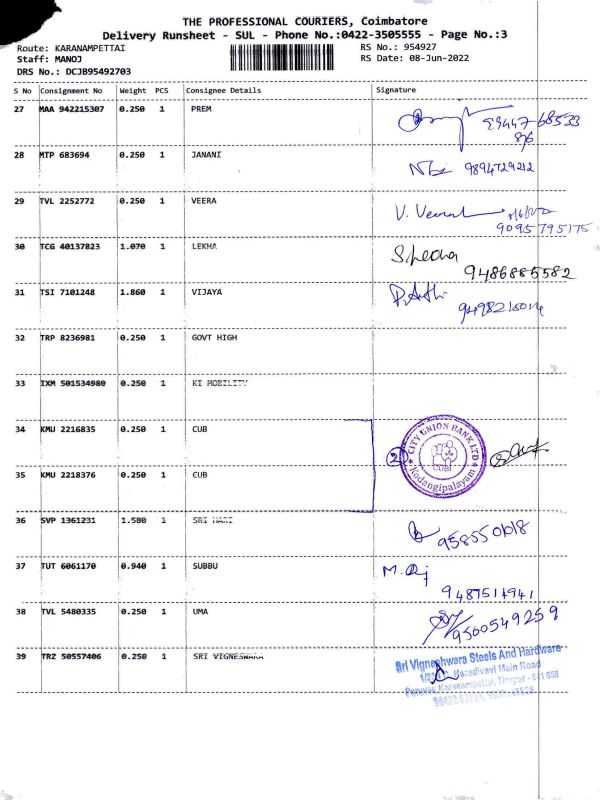 THE PROFESSIONAL COURIERS, Coimbatore
Delivery Runsheet - SUL - Phone No.:0422-3505555 - Page No.:3
Route: KARANAMPETTAI
RS No.: 954927
Staff: MANOJ
RS Date: 08-Jun-2022
DRS No.: DCJB95492703
S No Consignment No Weight PCS Consignee Details Signature
27 MAA 942215307 0.250 1 PREM
28 MTP 683694 0.250 1 JANANI 9894729212
29 TVL 2252772 0.250 1 VEERA V. Veera
9095795175
30 TCG 40137823 1.070 1 LEKHA
9486885582
31 TSI 7101248 1.860 1 VIJAYA
32 TRP 8236981 0.250 1 GOVT HIGH
33 IXM 501534980 0.250 1 KI MOBILITY
34 KMU 2216835 0.250 1 CUB
CITY UNION BANK LTD
2
CUB
Kodangipalayam
35 KMU 2218376 0.250 1 CUB
36 SVP 1361231 1.580 1 SRI HARI
37 TUT 6061170 0.940 1 SUBBU
9487514941
38 TVL 5480335 0.250 1 UMA
9500549259
39 TRZ 50557406 0.250 1 SRI VIGNESWARA
Sri Vigneshwara Steels And Hardware
Karadivavi Main Road
Karanampettai, Tirupur - 641 658